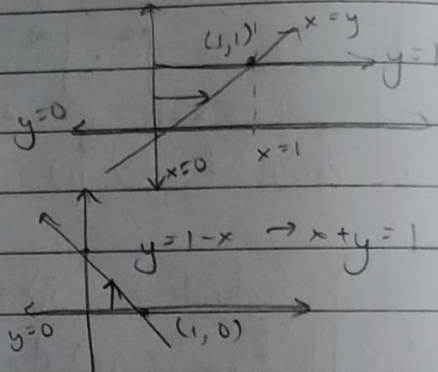 (1,1) x=y
y=1
y=0
x=0 x=1
y=1-x → x+y=1
y=0 (1,0)